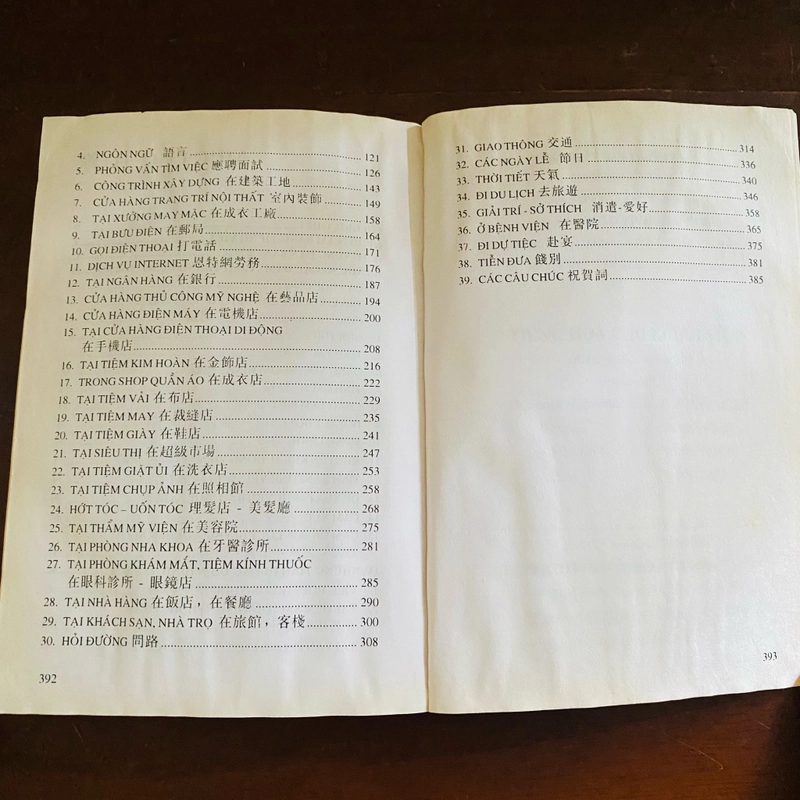 4. NGÔN NGỮ 語言 ........ 121
5. PHỎNG VẤN TÌM VIỆC 應聘面試 ........ 126
6. CÔNG TRÌNH XÂY DỰNG 在建築工地 ........ 143
7. CỬA HÀNG TRANG TRÍ NỘI THẤT 室內裝飾 ........ 149
8. TẠI XƯỞNG MAY MẶC 在成衣工廠 ........ 158
9. TẠI BƯU ĐIỆN 在郵局 ........ 164
10. GỌI ĐIỆN THOẠI 打電話 ........ 171
11. DỊCH VỤ INTERNET 恩特網勞務 ........ 176
12. TẠI NGÂN HÀNG 在銀行 ........ 187
13. CỬA HÀNG THỦ CÔNG MỸ NGHỆ 在藝品店 ........ 194
14. CỬA HÀNG ĐIỆN MÁY 在電機店 ........ 200
15. TẠI CỬA HÀNG ĐIỆN THOẠI DI ĐỘNG
在手機店 ........ 208
16. TẠI TIỆM KIM HOÀN 在金飾店 ........ 216
17. TRONG SHOP QUẦN ÁO 在成衣店 ........ 222
18. TẠI TIỆM VẢI 在布店 ........ 229
19. TẠI TIỆM MAY 在裁縫店 ........ 235
20. TẠI TIỆM GIÀY 在鞋店 ........ 241
21. TẠI SIÊU THỊ 在超級市場 ........ 247
22. TẠI TIỆM GIẶT ỦI 在洗衣店 ........ 253
23. TẠI TIỆM CHỤP ẢNH 在照相館 ........ 258
24. HỚT TÓC – UỐN TÓC 理髪店 - 美髪廳 ........ 268
25. TẠI THẨM MỸ VIỆN 在美容院 ........ 275
26. TẠI PHÒNG NHA KHOA 在牙醫診所 ........ 281
27. TẠI PHÒNG KHÁM MẮT, TIỆM KÍNH THUỐC
在眼科診所 - 眼鏡店 ........ 285
28. TẠI NHÀ HÀNG 在飯店，在餐廳 ........ 290
29. TẠI KHÁCH SẠN, NHÀ TRỌ 在旅館，客棧 ........ 300
30. HỎI ĐƯỜNG 問路 ........ 308
392
31. GIAO THÔNG 交通 ........ 314
32. CÁC NGÀY LỄ 節日 ........ 336
33. THỜI TIẾT 天氣 ........ 340
34. ĐI DU LỊCH 去旅遊 ........ 346
35. GIẢI TRÍ - SỞ THÍCH 消遣-愛好 ........ 358
36. Ở BỆNH VIỆN 在醫院 ........ 365
37. ĐI DỰ TIỆC 赴宴 ........ 375
38. TIỄN ĐƯA 餞別 ........ 381
39. CÁC CÂU CHÚC 祝賀詞 ........ 385
393